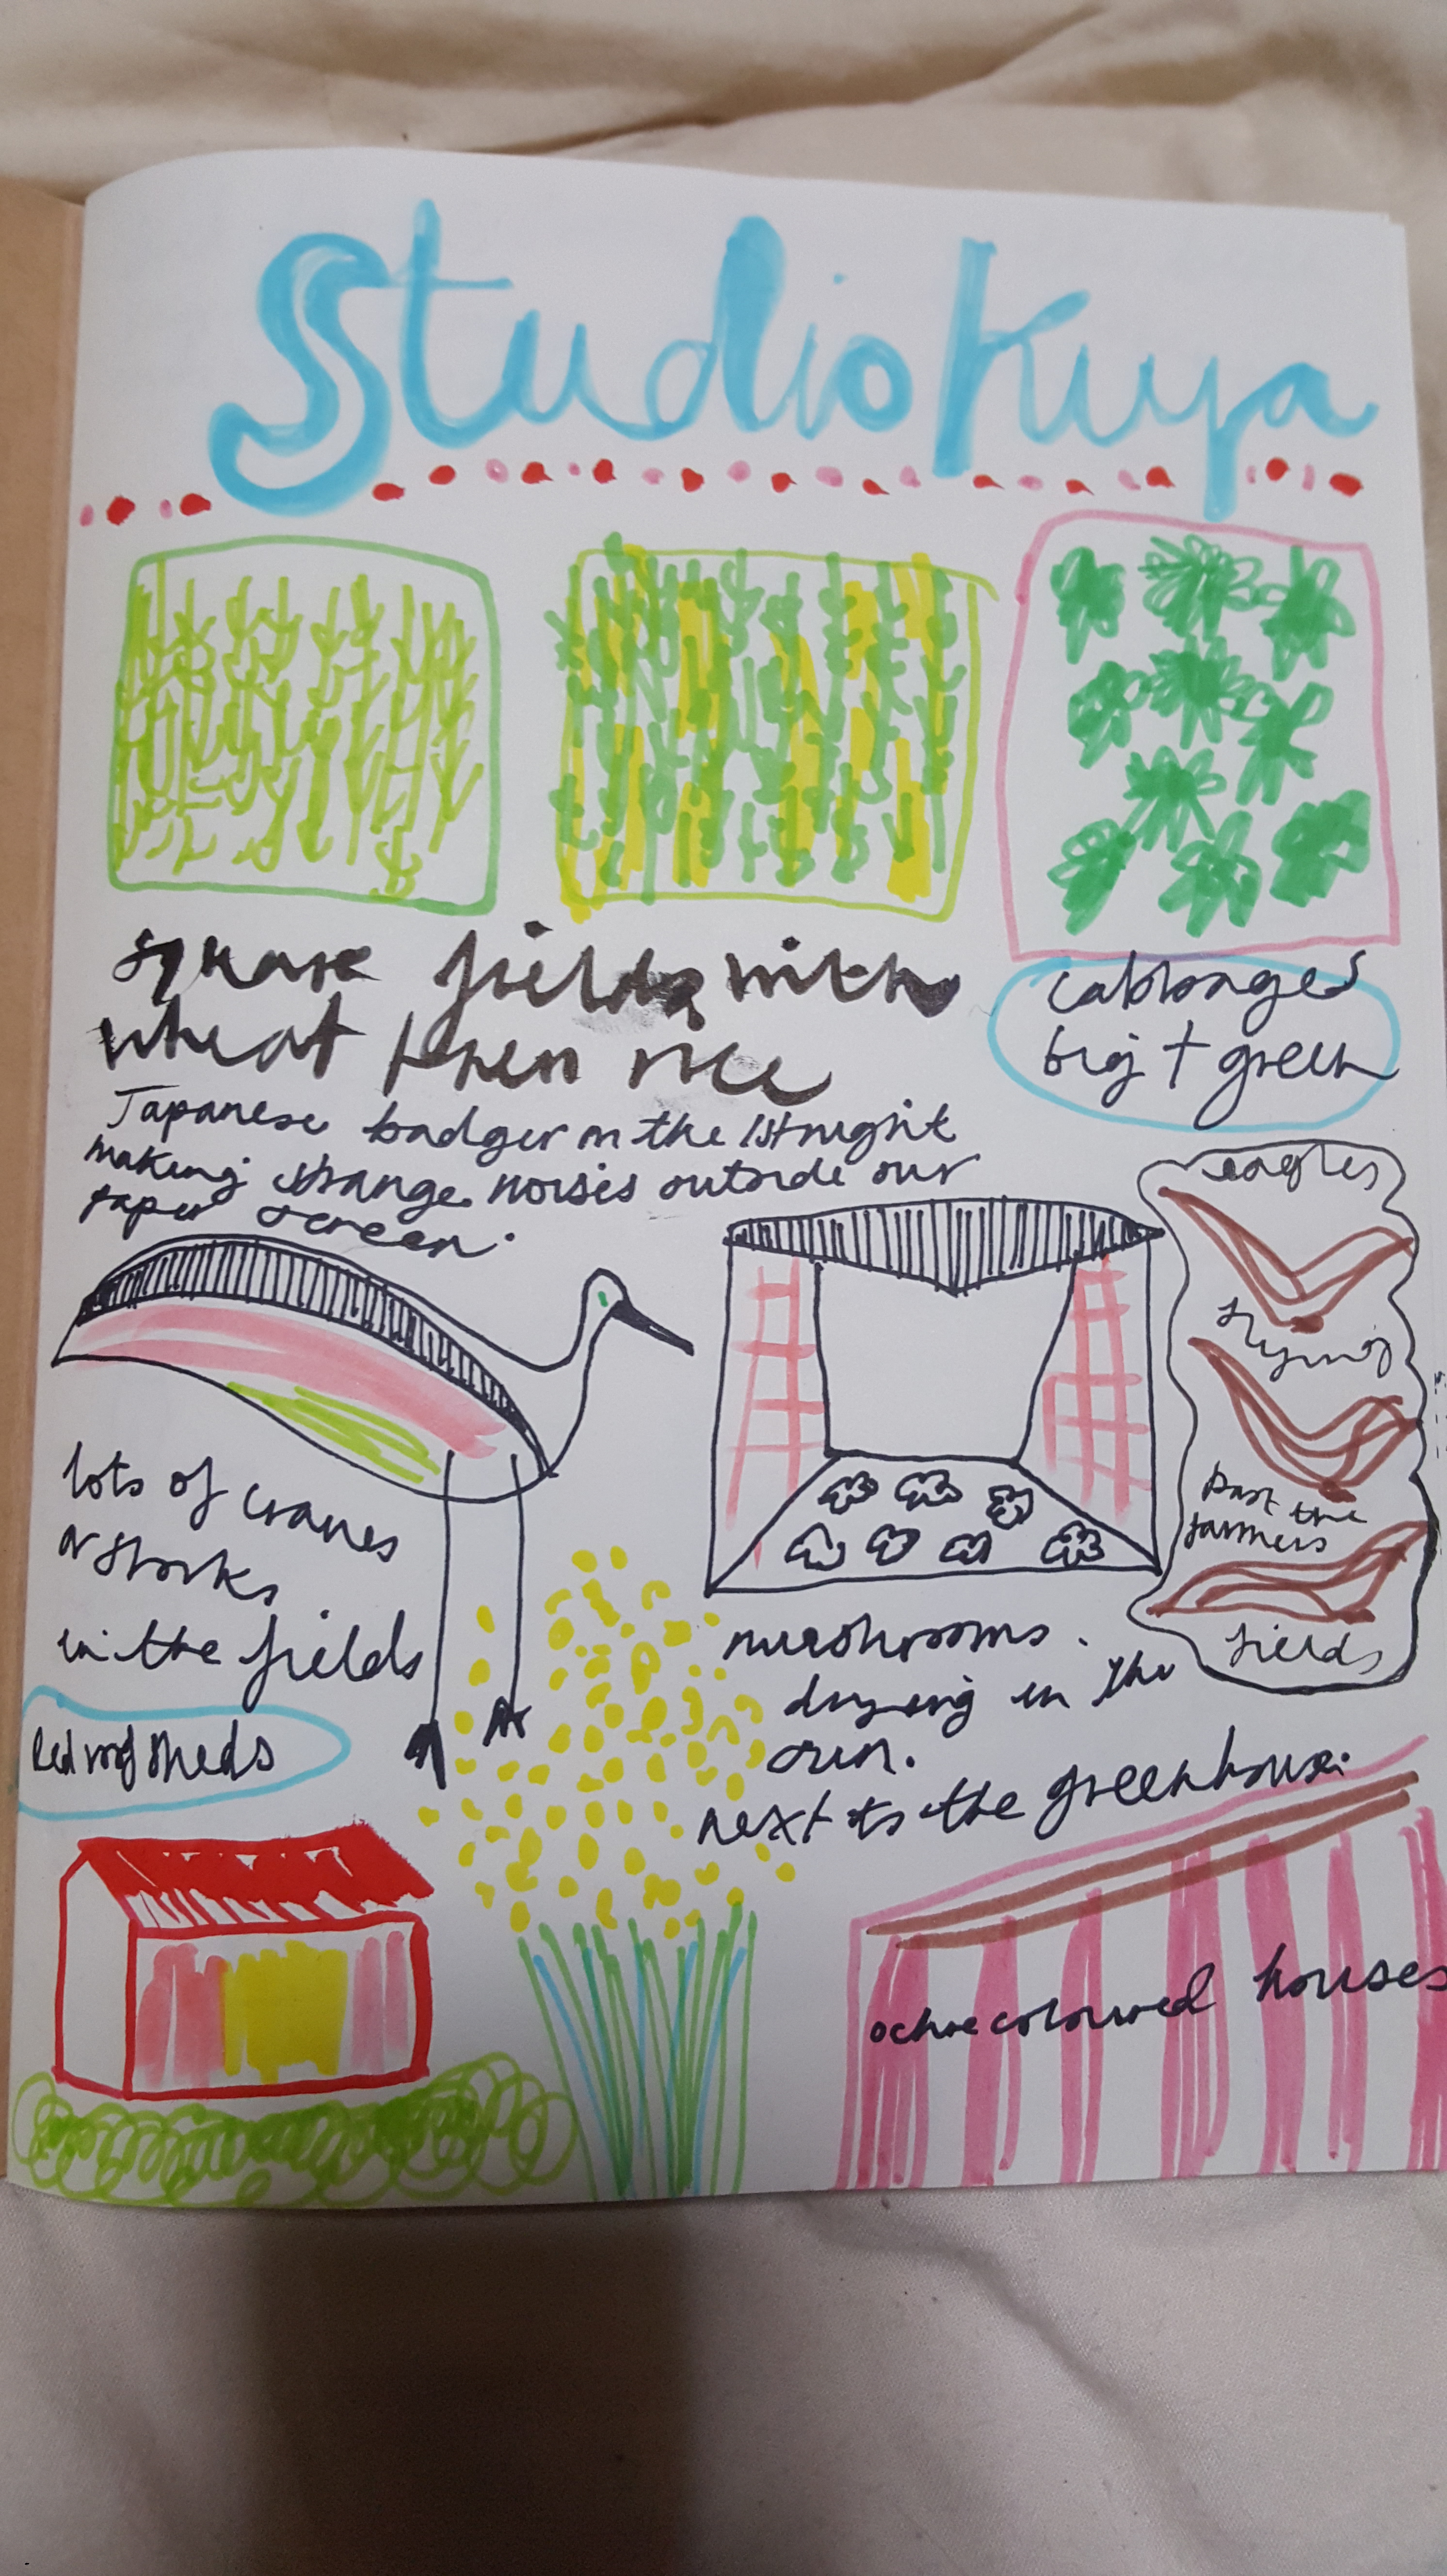 Studio Kuya
square fields with
wheat then rice
cabbages
big + green
Japanese badger on the 1st night
making strange noises outside our
paper screen.
eagles
flying
past the
farmers
fields
lots of cranes
or storks
in the fields
mushrooms.
drying in the
sun.
next to the greenhouse.
Red roof sheds
ochre coloured houses